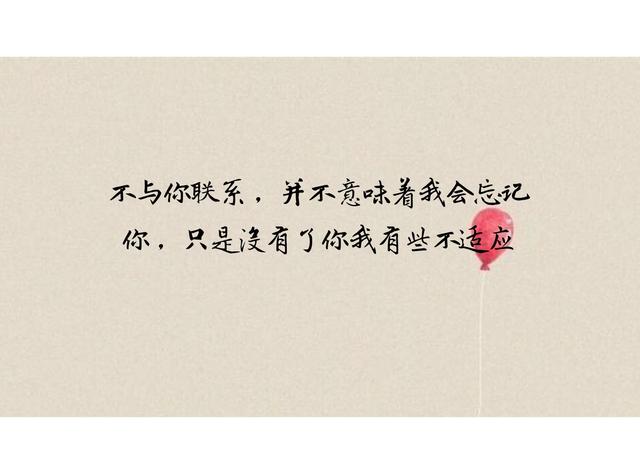 不与你联系，并不意味着我会忘记
你，只是没有了你我有些不适应